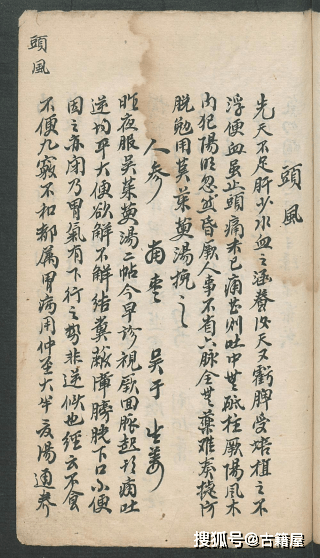 頭風
頭風
先天不足肝少水血之涵養後天又虧脾受培植之不
浮便血虽止頭痛未已痛甚則吐中無砥柱厥陽風木
内犯陽明忽然昏厥人事不省六脉全無藥難奏捷
脱勉用吳茱萸湯挽之
人参 南枣 吴于 生姜
昨夜服吴茱萸湯二帖今早诊視厥回脉起頭痛吐
逆均平大便欲解不解結糞
膀胱下口小便
因之亦闭乃胃氣有下行之势非逆候也經云不會
不便九竅不和都属胃病用仲圣大半夏湯通養
搜狐号@古籍屋